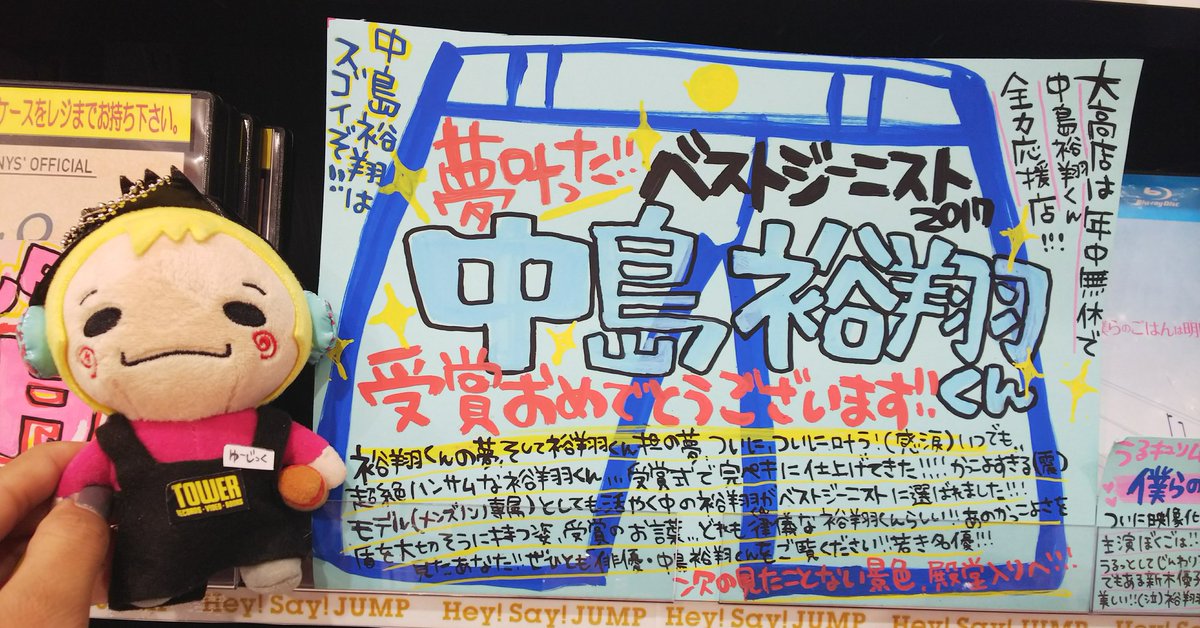 ケースをレジまでお持ち下さい。
NYS' OFFICIAL
中島裕翔は
スゴイぞ!!!
大高店は年中無休で
中島裕翔くん
全力応援店!!!
夢叶った!!
ベストジーニスト
2017
中島裕翔
くん
受賞おめでとうございます!!
裕翔くんの夢、そして裕翔くん担の夢、ついに、ついに叶う!(感涙)いつでも、
超絶ハンサムな裕翔くん…受賞式で完ペキに仕上げてきた!!!!かっこよすぎる(震)
モデル(メンズノンノ専属)としても活やく中の裕翔くんがベストジーニストに選ばれました!!!
盾を大切そうに持つ姿、受賞のお言葉…どれも律儀な裕翔くんらしい!!!あのかっこよさを
見たあなた!!ぜひとも俳優・中島裕翔くんをご覧ください!!!若き名優!!!
次の見たことない景色、殿堂入りへ!!!
ゆーじっく
TOWER
RECORDS・VIDEO・BOOKS
Blu-ray Disc
僕らのごはんは明
うるキュリム
僕らの
ついに映像化
主演ぼくごは!!
うるっとしてじんわり
でもある新木優子
美しい!!(泣)裕翔
Hey! Say! JUMP Hey! Say! JUMP Hey! Say! JUMP Hey! Say! JUMP